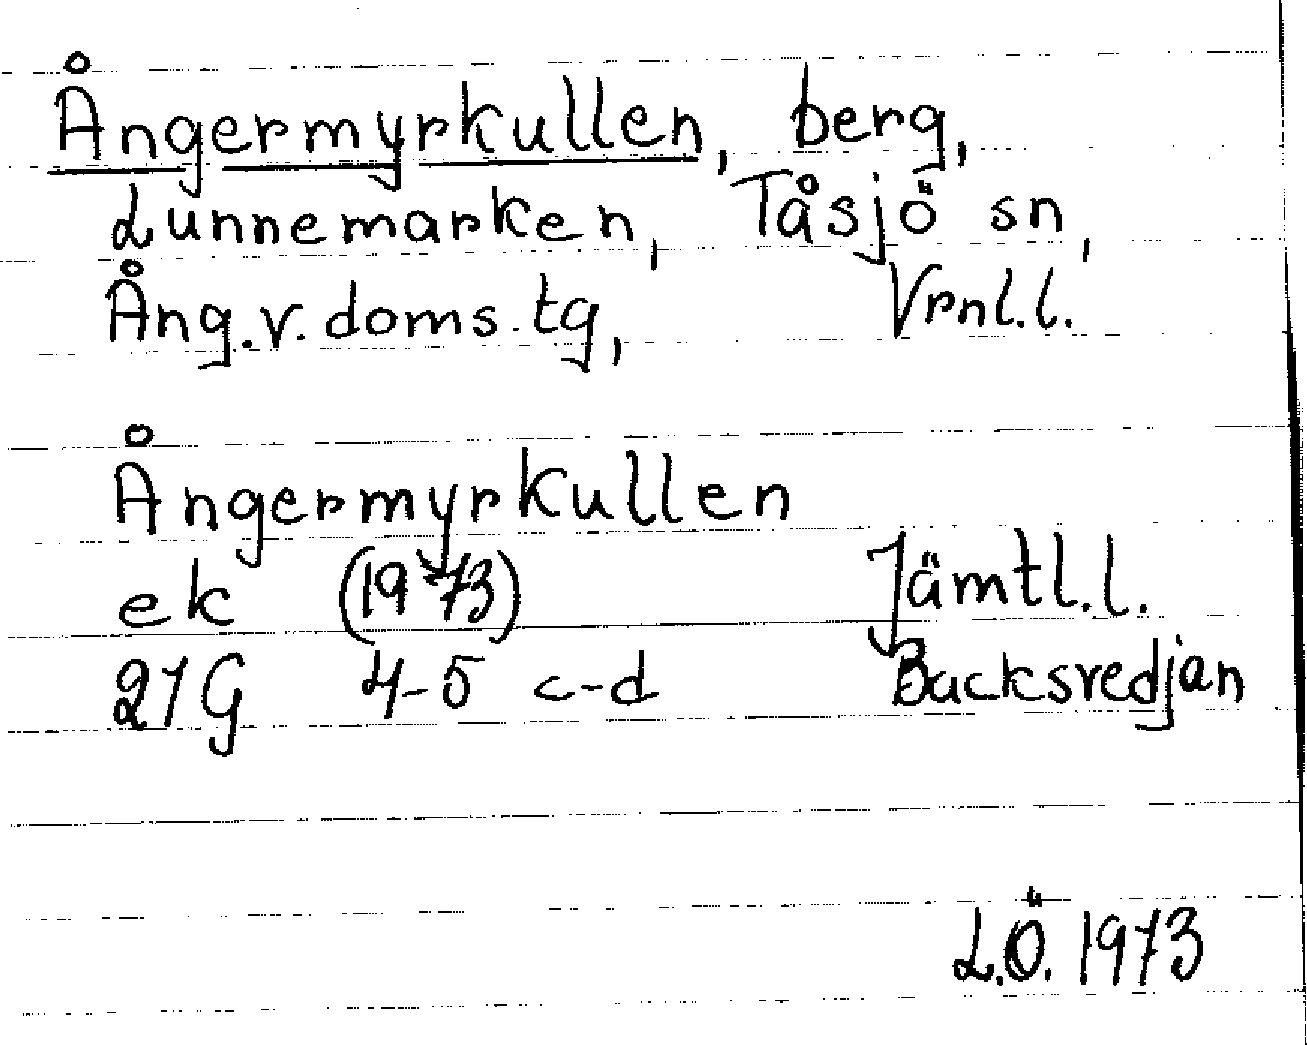 Ångermyrkullen, berg,
Lunnemarken, Tåsjö sn,
Ång.v. doms. tg, Vrnl.l.
Ångermyrkullen
ek (1973) Jämtl.l.
21G 4-5 c-d Backsredjan
L.Ö. 1973